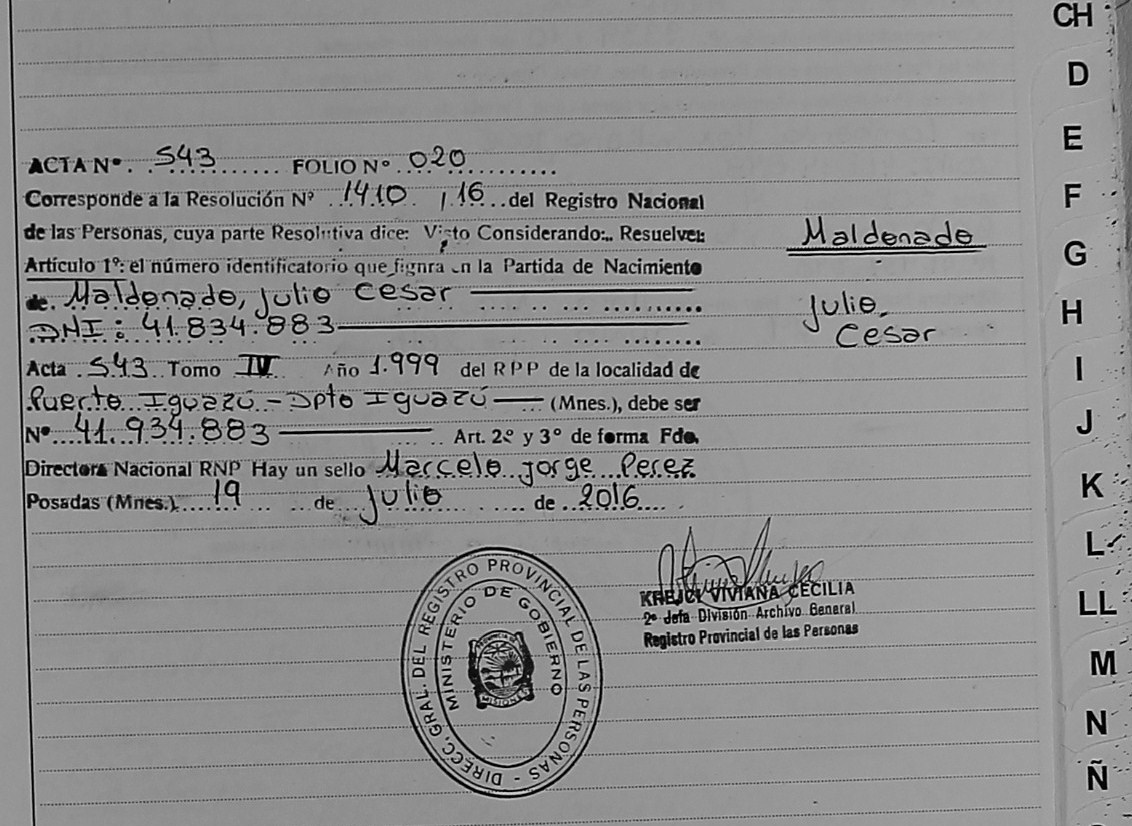 ACTA Nº. 543 FOLIO Nº 020
Corresponde a la Resolución Nº 1410 / 16 del Registro Nacional
de las Personas, cuya parte Resolutiva dice: Visto Considerando:.. Resuelve:
Artículo 1º: el número identificatorio que fignra en la Partida de Nacimiento
de. Maldonado, Julio Cesar
DNI: 41.834.883
Acta 543 Tomo IV Año 1.999 del RPP de la localidad de
Puerto Iguazú - Dpto Iguazú (Mnes.), debe ser
Nº 41.934.883 Art. 2º y 3º de forma Fdo.
Directora Nacional RNP Hay un sello Marcelo Jorge Perez
Posadas (Mnes.) 19 de Julio de 2016
Maldonado
Julio
Cesar
KREJCI VIVIANA CECILIA
2º Jefa División Archivo General
Registro Provincial de las Personas
DIREC. GRAL. DEL REGISTRO PROVINCIAL DE LAS PERSONAS -
MINISTERIO DE GOBIERNO
MISIONES
CH
D
E
F
G
H
I
J
K
L
LL
M
N
Ñ